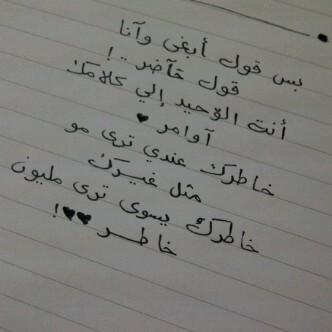 بس قول أبغى وآنا
قول حآضر .. !
أنت الوحيد إلي كلامك
آوامر ♥
خاطرك عندي ترى مو
مثل غيرك
خاطرك يسوى ترى مليون
خاطر ♥♥!